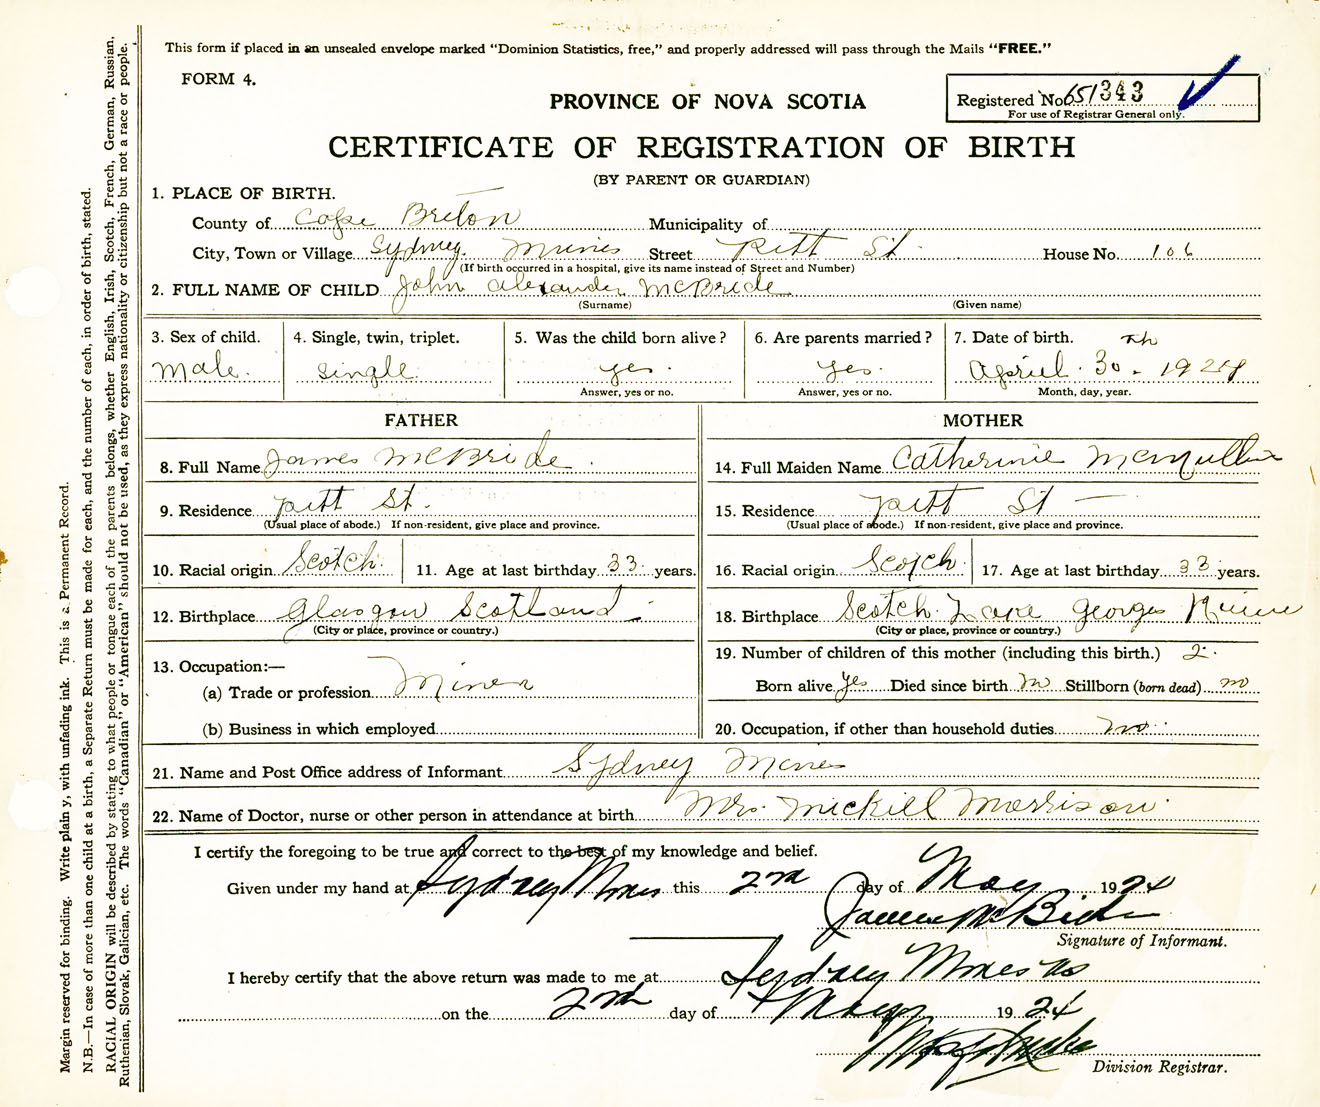 This form if placed in an unsealed envelope marked "Dominion Statistics, free," and properly addressed will pass through the Mails "FREE."
FORM 4.
Registered No 651343
For use of Registrar General only.
PROVINCE OF NOVA SCOTIA
CERTIFICATE OF REGISTRATION OF BIRTH
(BY PARENT OR GUARDIAN)
1. PLACE OF BIRTH.
County of Cape Breton Municipality of
City, Town or Village Sydney Mines Street Pitt St. House No. 106
(If birth occurred in a hospital, give its name instead of Street and Number)
2. FULL NAME OF CHILD John Alexander McBride
(Surname) (Given name)
3. Sex of child. 4. Single, twin, triplet. 5. Was the child born alive? 6. Are parents married? 7. Date of birth.
male. single yes. yes. April 30th 1924
Answer, yes or no. Answer, yes or no. Month, day, year.
FATHER MOTHER
8. Full Name James McBride 14. Full Maiden Name Catherine McMullin
9. Residence Pitt St. 15. Residence Pitt St
(Usual place of abode.) If non-resident, give place and province. (Usual place of abode.) If non-resident, give place and province.
10. Racial origin Scotch 11. Age at last birthday 33 years. 16. Racial origin Scotch 17. Age at last birthday 33 years.
12. Birthplace Glasgow Scotland 18. Birthplace Scotch Georges
(City or place, province or country.) (City or place, province or country.)
13. Occupation:— 19. Number of children of this mother (including this birth.) 2.
(a) Trade or profession Miner Born alive yes Died since birth no Stillborn (born dead) no
(b) Business in which employed 20. Occupation, if other than household duties no
21. Name and Post Office address of Informant Sydney Mines
22. Name of Doctor, nurse or other person in attendance at birth Mrs. Mickill Morrison
I certify the foregoing to be true and correct to the best of my knowledge and belief.
Given under my hand at Sydney Mines this 2nd day of May 1924
James McBride
Signature of Informant.
I hereby certify that the above return was made to me at Sydney Mines NS
on the 2nd day of May 1924
Division Registrar.
Margin reserved for binding. Write plainly, with unfading ink. This is a Permanent Record.
N.B.—In case of more than one child at a birth, a Separate Return must be made for each, and the number of each, in order of birth, stated.
RACIAL ORIGIN will be described by stating to what people or tongue each of the parents belongs, whether English, Irish, Scotch, French, German, Russian,
Ruthenian, Slovak, Galician, etc. The words "Canadian" or "American" should not be used, as they express nationality or citizenship but not a race or people.